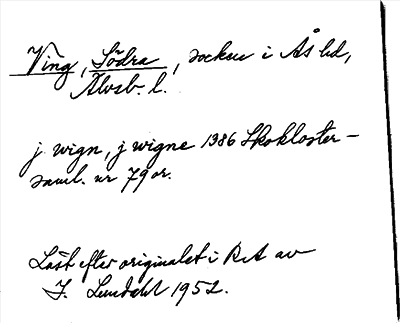 Ving, Södra, socken i Ås hd,
Älvsb. l.
j wign, j wigne 1386 Skokloster-
saml. nr 79 or.
Läst efter originalet i RA av
I. Lundahl 1952.